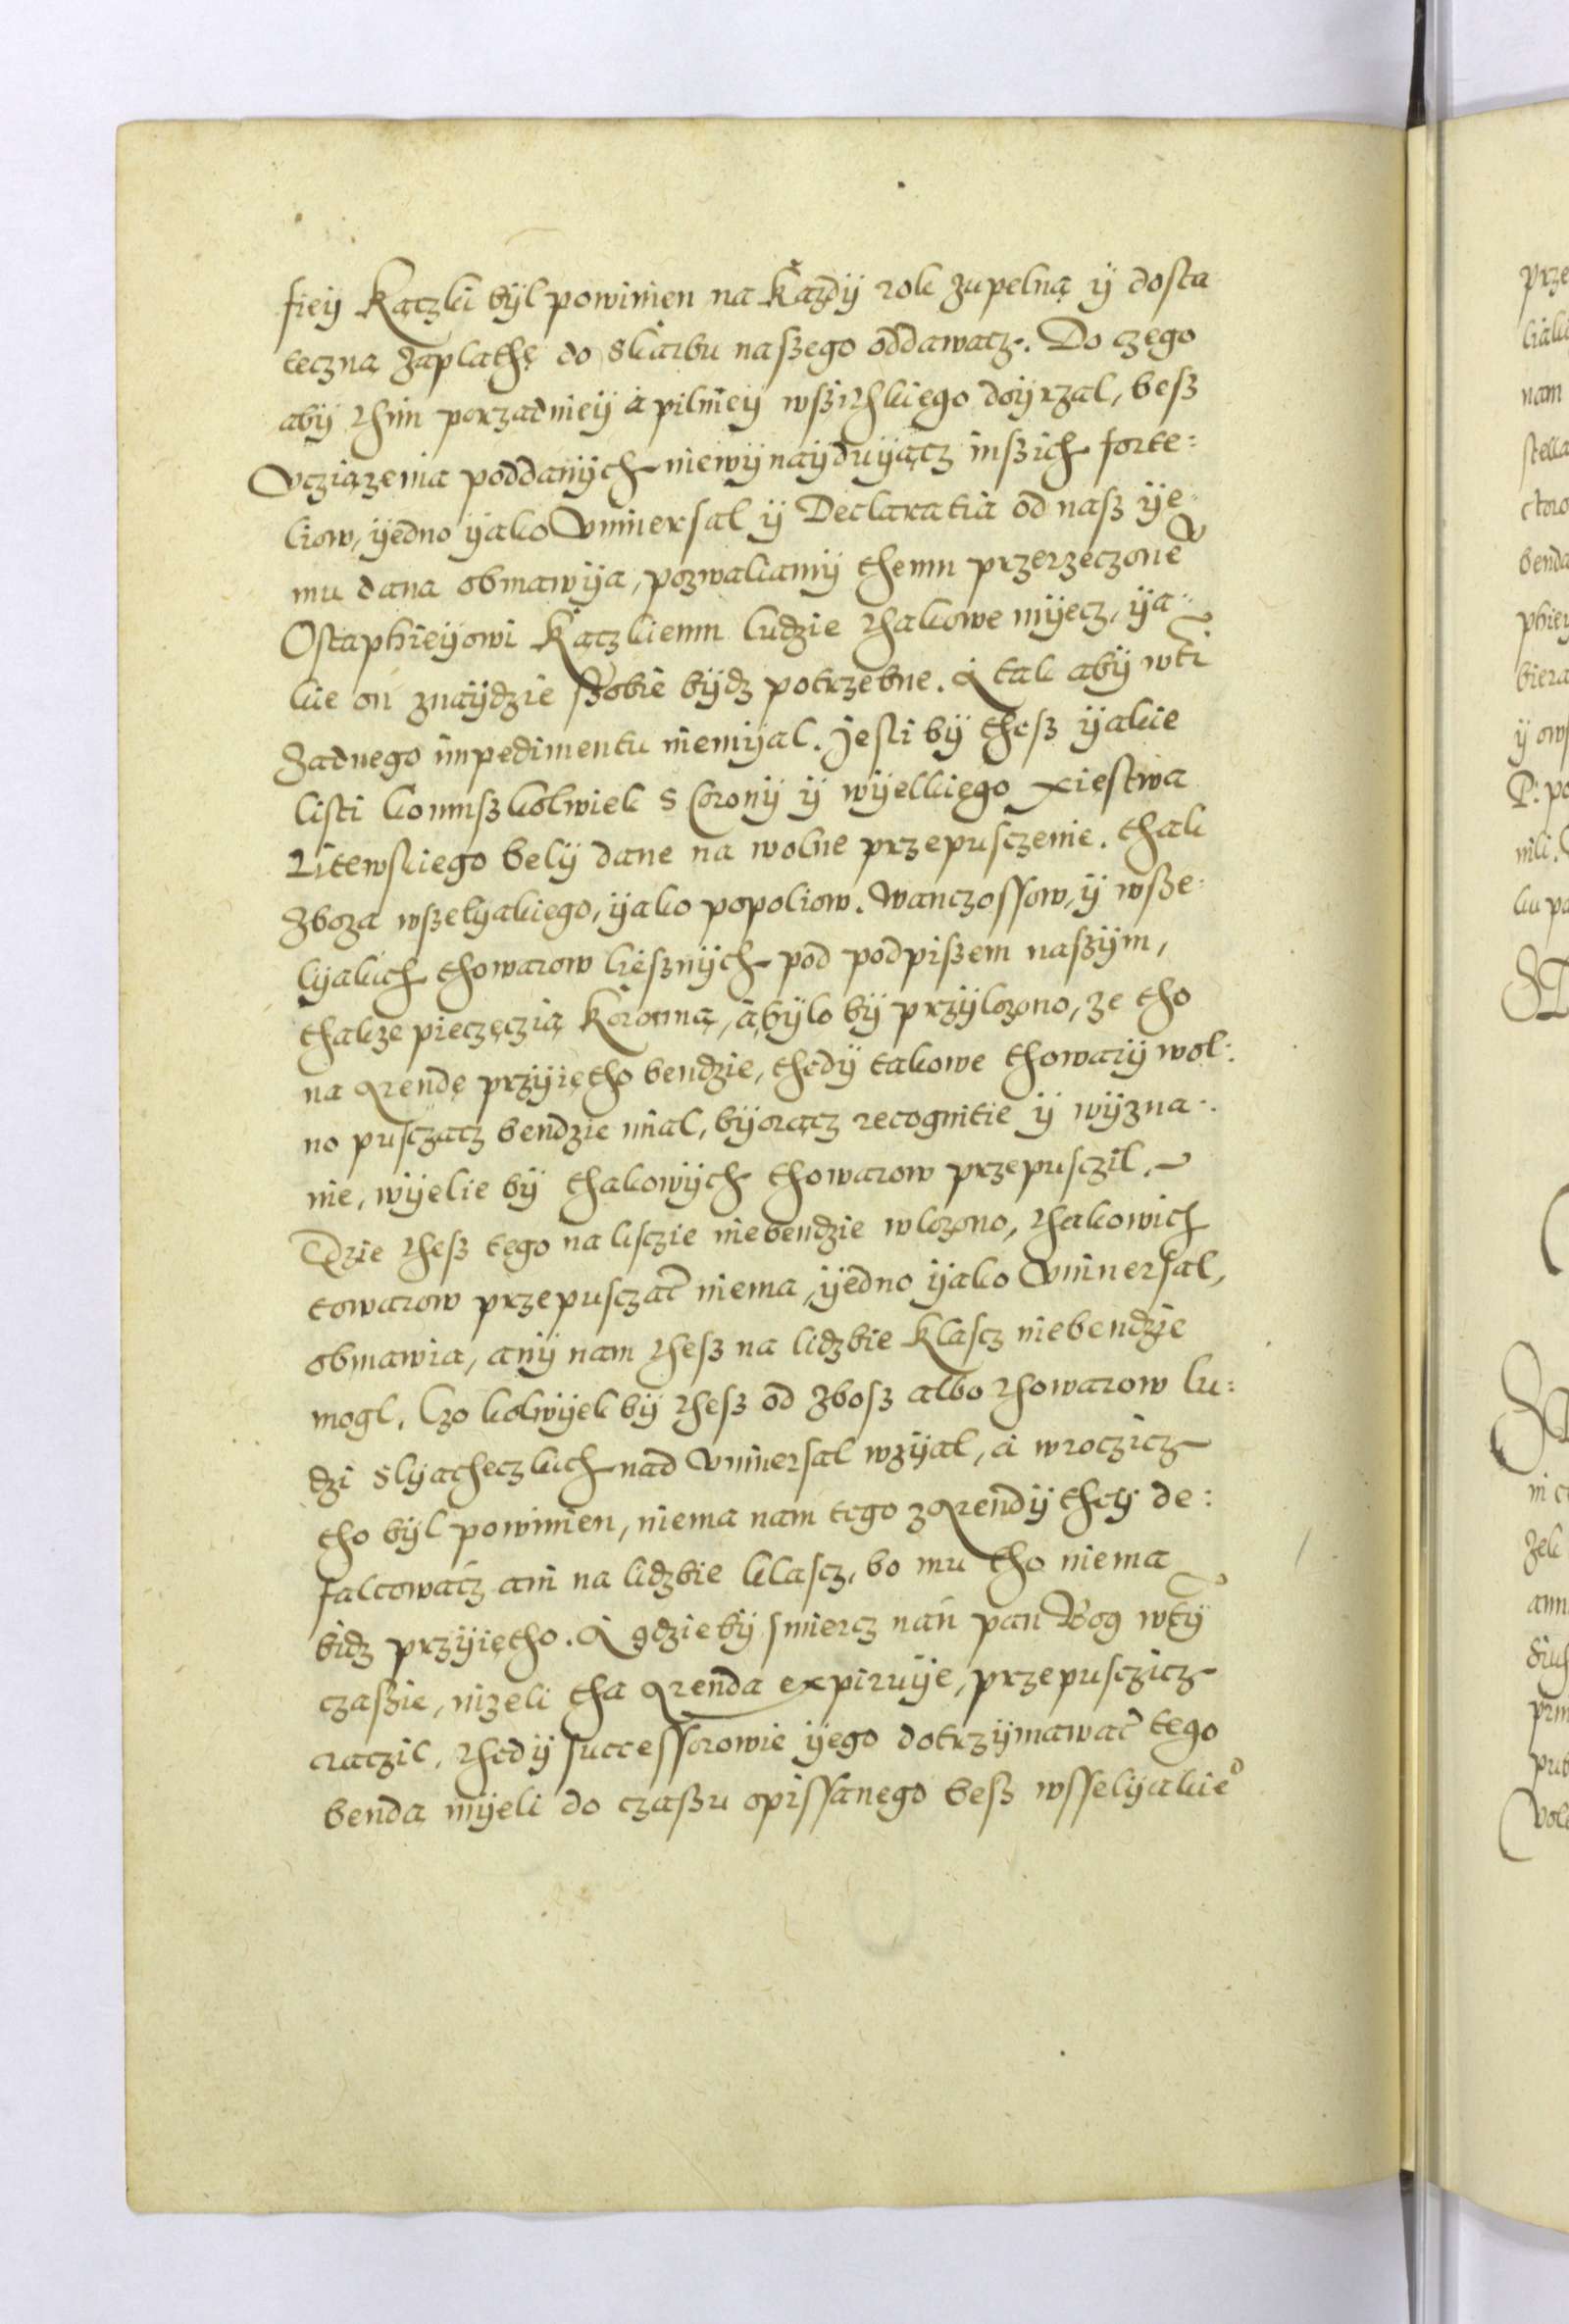 fiey Kączki był powinien na Każdÿ rok zupelną ÿ dosta
teczną zaplathę do skarbu naszego oddawacz. Do czego
abÿ thim porządnieÿ a pilnieÿ wszithkiego doÿrzal, besz
Vcziązenia poddanÿch niewÿnaÿduÿącz inszich forte:
liow, ÿedno ÿako Vniuersal ÿ Declaratia od nasz ÿe
mu dana obmawÿa, pozwaliamÿ themu przerzeczone
Ostaphieÿowi Kączkiemu ludzie thakowe mÿecz, ÿa
kie on znaÿdzie szobie bÿdz potrzebne. A tak abÿ wti
żadnego impedimentu niemÿal. Jesli bÿ thesz ÿakie
listi komuszkolwiek s Coronÿ ÿ wÿelkiego Xiestwa
Litewskiego belÿ dane na wolne przepusczenie. thak
zboza wszelÿakiego, ÿako popoliow. Wanczossow, ÿ wsze:
lÿakich thowarow liesznÿch pod podpiszem naszÿm,
thakze pieczęczią Koronną, a bÿlo bÿ przÿlozono, ze tho
na Arendę przÿiętho bendzie, thedÿ takowe thowarÿ wol:
no pusczacz bendzie mial, bÿorącz recognitie ÿ wÿzna:
nie, wÿelie bÿ thakowÿch thowarow przepusczil.
Gdzie thesz tego na lisczie niebendzie wlozono, thakowich
towarow przepusczać niema, ÿedno ÿako Vniuersal,
obmawia, anÿ nam thesz na lidzbie Klascz niebendzie
mogl. Czo kolwÿek bÿ thesz od zbosz albo thowarow lu:
dzi slÿacheczkich nad Vniuersal wzÿal, a wroczicz
tho bÿl powinien, niema nam tego z Arendÿ theÿ de:
falcowacz ani na lidzbie klascz, bo mu tho niema
bidz przÿiętho. A gdziebÿ smiercz nań pan Bog wtÿ
czaszie, nizeli tha Arenda expiruÿe, przepusczicz
raczil, thedÿ successorowie ÿego dotrzÿmawać tego
bendą mÿeli do czaszu opissanego besz wsselÿakieo